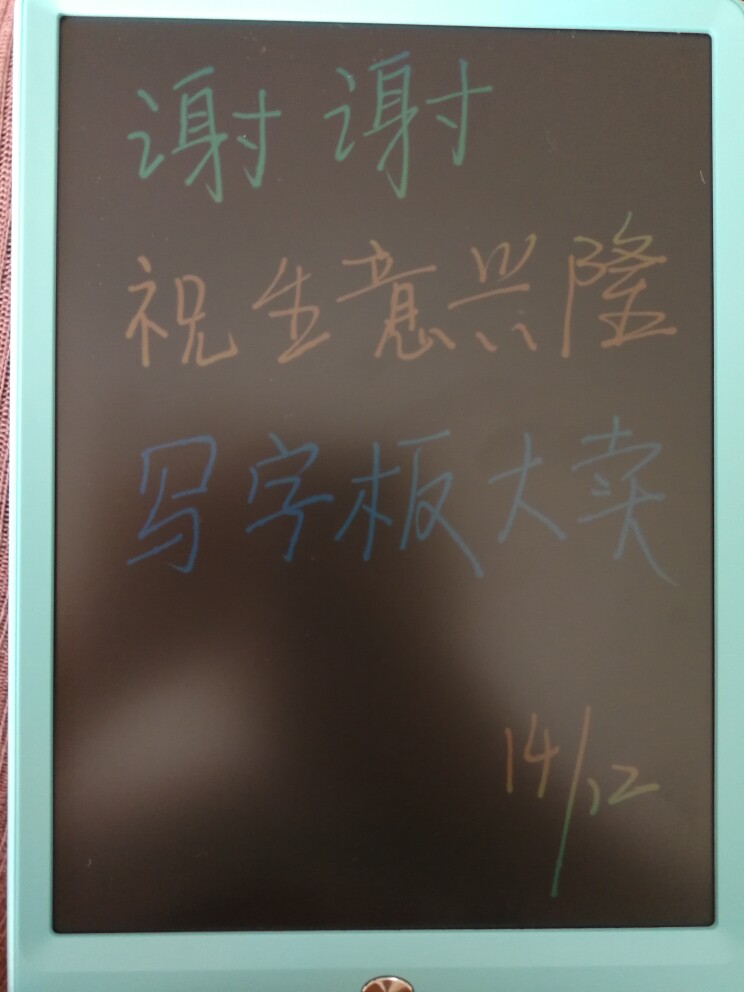 谢谢
祝生意兴隆
写字板大卖
14/12